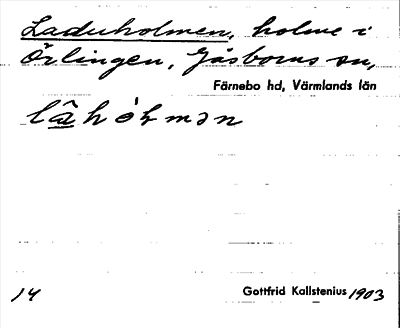 Laduholmen, holme i
Örlingen, Gåsborns sn,
Färnebo hd, Värmlands län
14
Gottfrid Kallstenius 1903